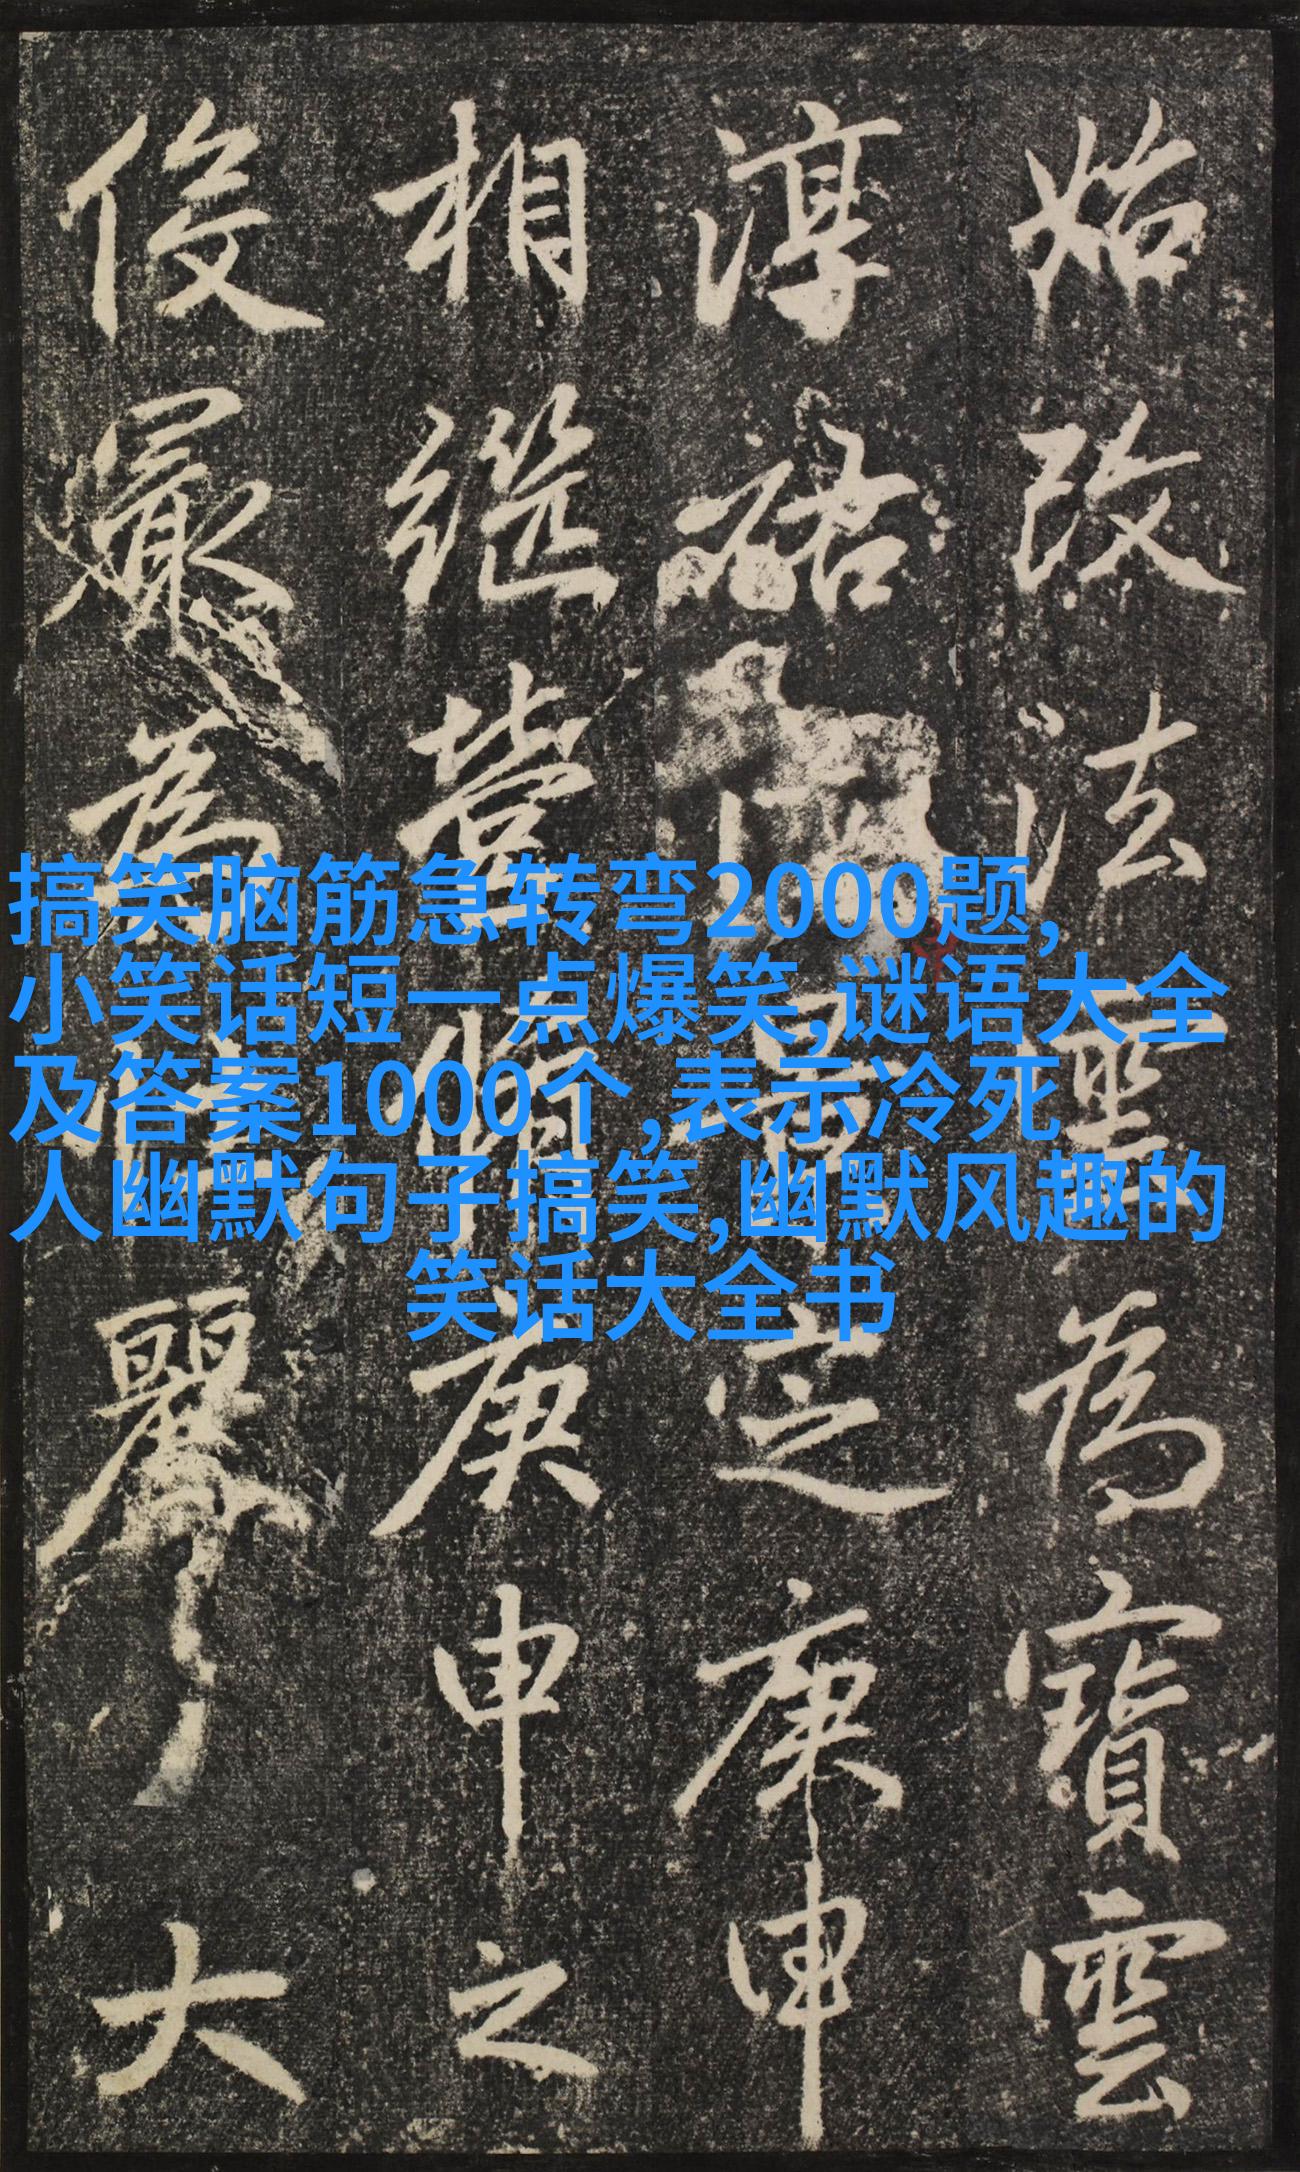 始改法為寶雲
淳祐定庚申
相繼營庚申之
俊最為麗大
搞笑脑筋急转弯2000题,
小笑话短一点爆笑,谜语大全
及答案1000个,表示冷死
人幽默句子搞笑,幽默风趣的
笑话大全书